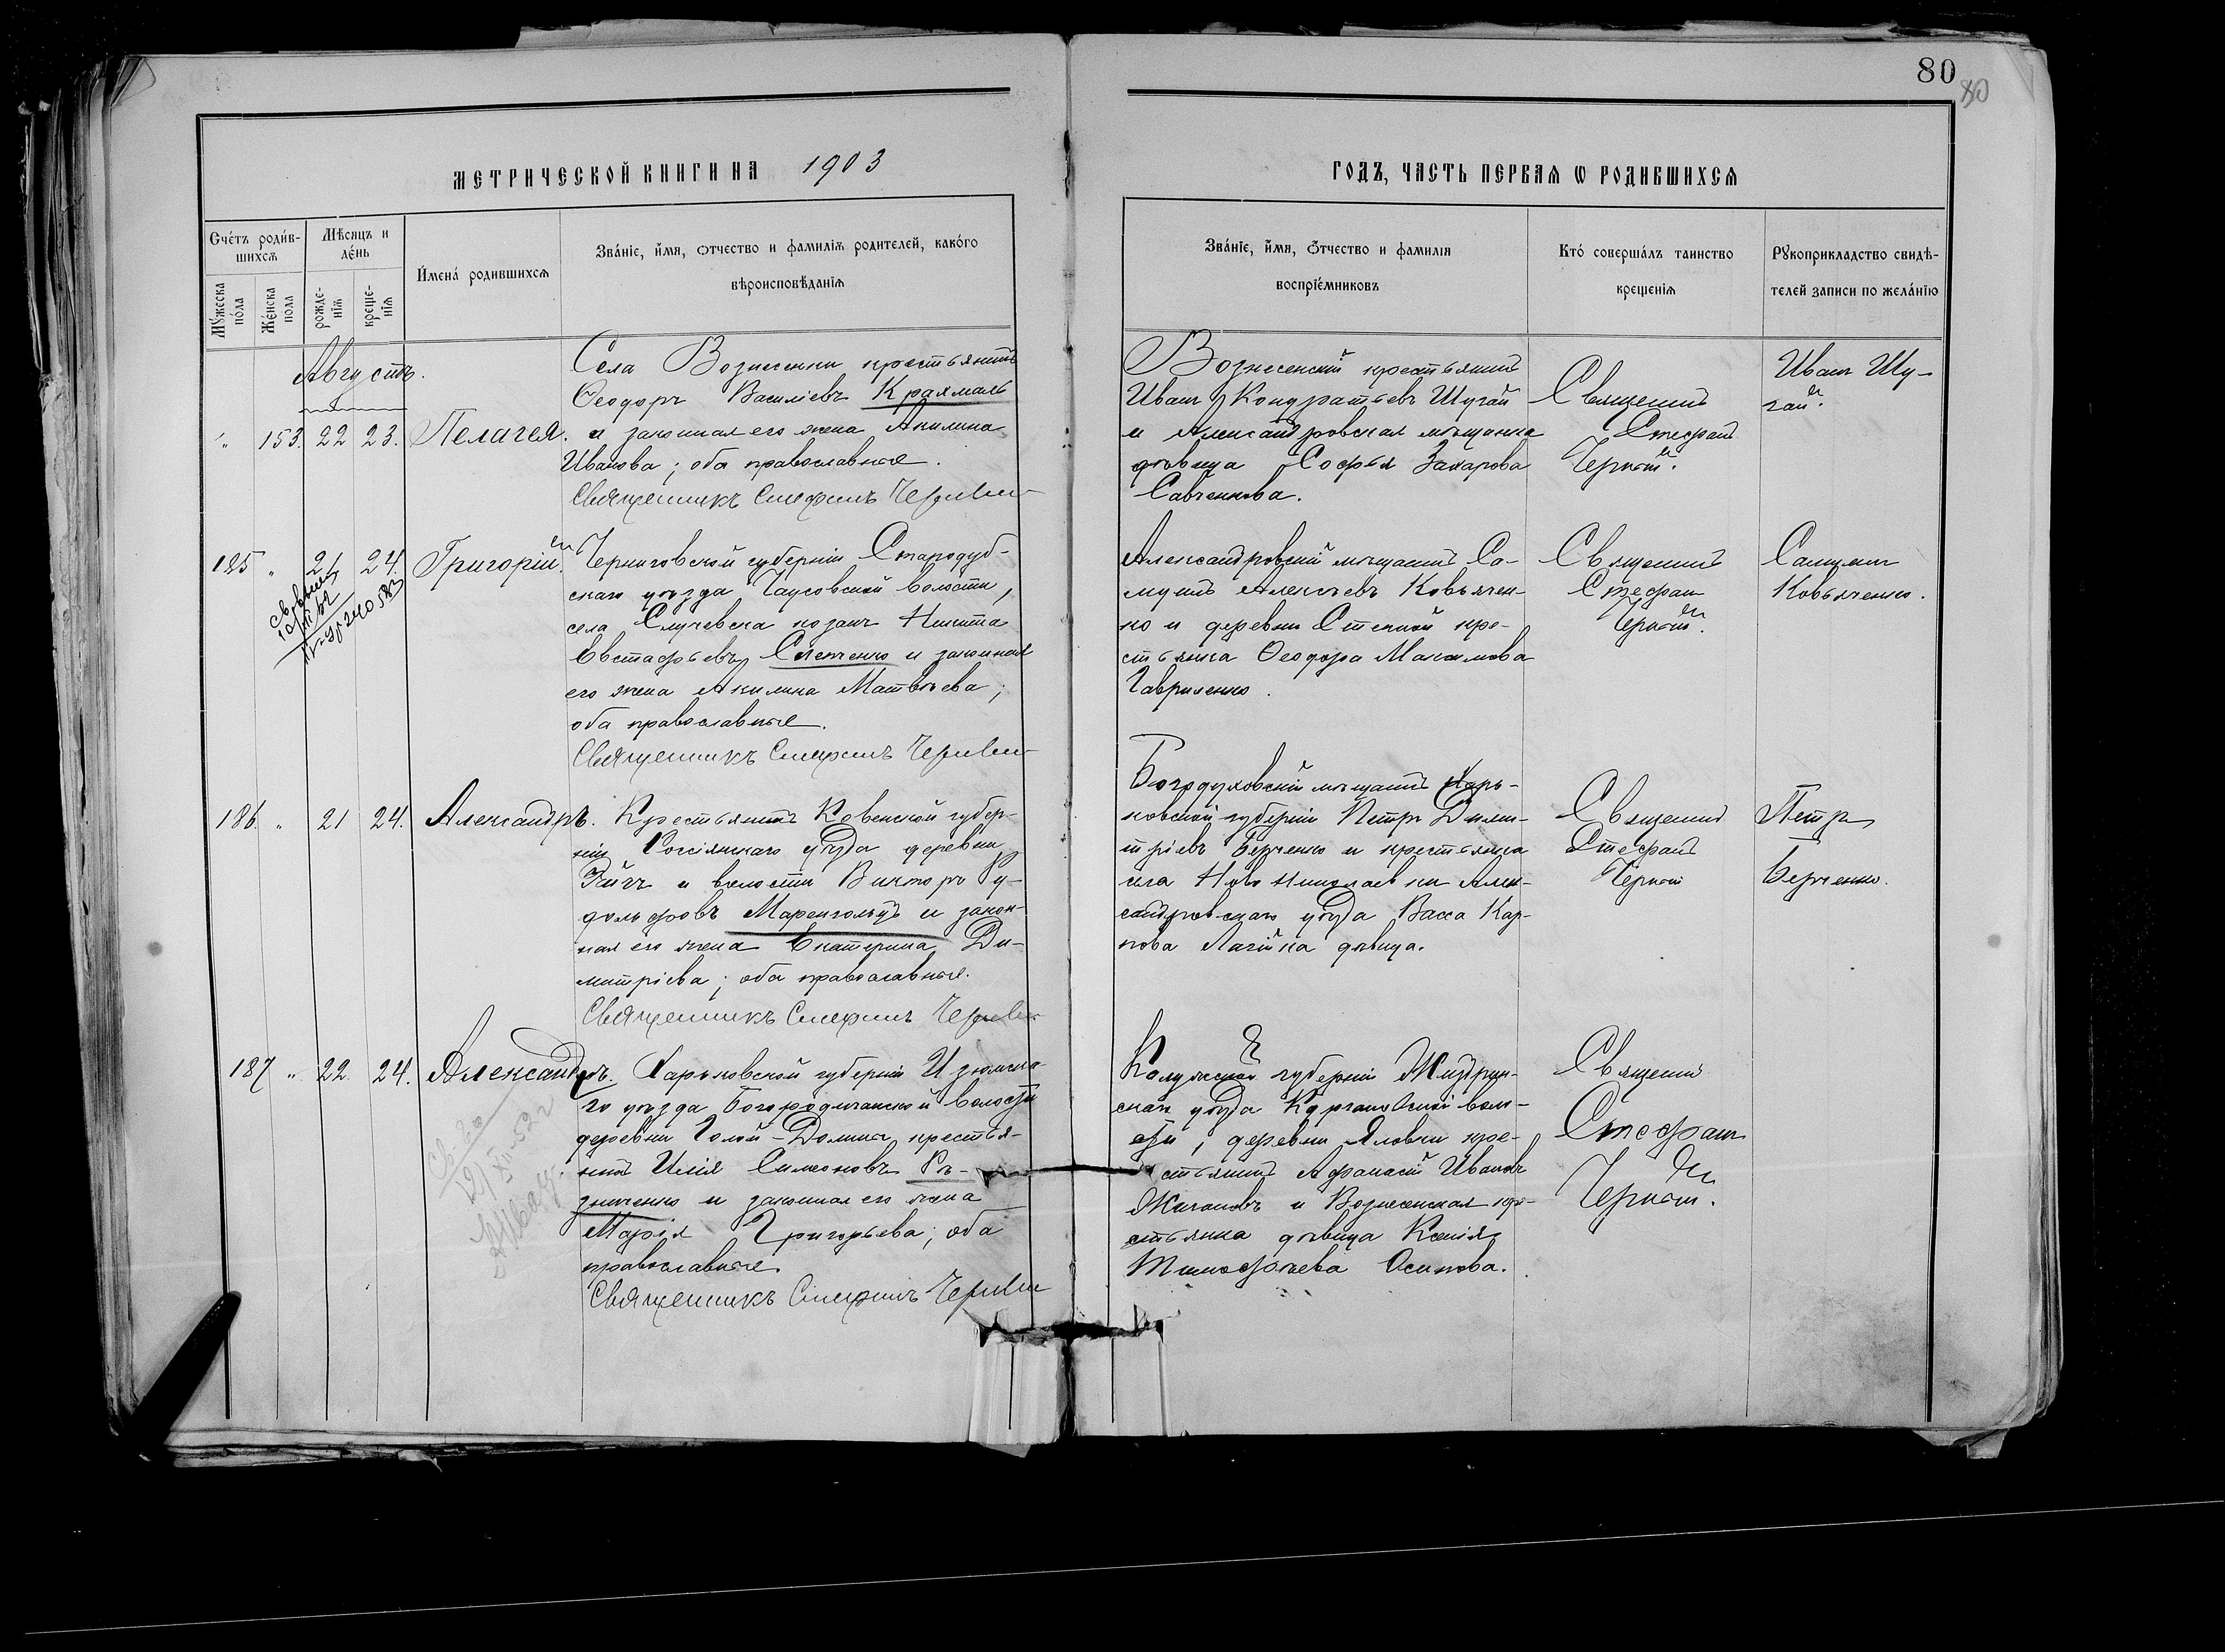 80
80
МЕТРИЧЕСКОЙ КНИГИ НА 1903
ГОДЪ, ЧАСТЬ ПЕРВАЯ Ѡ РОДИВШИХСЯ
Счéтъ роди́в-
шихсѧ
Мѣ́сяцъ и
дéнь
Мꙋ́жеска
по́ла
Же́нска
пола
рожде-
нїѧ
креще-
нїѧ
И́мена́ родившихсѧ
Зва́нїе, и́мя, ѻтчество и фамилїѧ родителей, како́го
вѣроисповѣ́данїѧ
Зва́нїе, и́мя, ѻ́тчество и фамилїя
воспрїéмниковъ
Кто́ соверша́лъ таинство
крещенїѧ
Рꙋкоприкладство свидѣ́-
телей записи по жела́нїю
Августъ.
" 153. 22 23. Пелагея.
Села Вознесенки крестьянинъ
Ѳеодоръ Василіевъ Крахмаль
и законная его жена Акилина
Иванова; оба православные.
Священникъ Стефанъ
Вознесенскій крестьянинъ
Иванъ Кондратьевъ Шугай
и Александровская мѣщанка
дѣвица Софья Захарова
Савченкова.
Священникъ
Стефанъ
Иванъ Шу-
гай.
185 " 21 24. Григорій.
Черниговской губерніи Стародуб-
скаго уѣзда Чаусовской волости,
села Случевска козакъ Никита
Евстафьевъ и законная
его жена Акилина Матвѣева;
оба православные.
Священникъ Стефанъ
Александровскій мѣщанинъ Са-
муилъ Алексѣевъ Ковьячен-
ко и деревни Степной кре-
стьянка Ѳеодора Максимова
Гавриленко.
Священникъ
Стефанъ
Самуилъ
Ковьяченко.
186. " 21 24. Александръ.
Крестьянинъ Ковенской губер-
ніи Россіянскаго уѣзда деревни
и волости Викторъ Ру-
дольфовъ Маренгольцъ и закон-
ная его жена Екатерина Ди-
митріева; оба православные.
Священникъ Стефанъ
Богодуховскій мѣщанинъ Харь-
ковской губерніи Петръ Дими-
тріевъ Берченко и крестьянка
села Ново Николаевки Алек-
сандровскаго уѣзда Васса Кар-
пова дѣвица.
Священникъ
Стефанъ
Петръ
Берченко.
187 " 22. 24. Александръ.
Харьковской губерніи Изюмска-
го уѣзда Богородичанской волости
деревни Голой-Долины крестья-
нинъ Илія Симеоновъ Рѣ-
зниченко и законная его жена
Марія Григорьева; оба
православные.
Священникъ Стефанъ
Калужской губерніи Жиздрин-
скаго уѣзда воло-
сти, деревни Яловки кре-
стьянинъ Афанасій Ивановъ
Жигановъ и Вознесенская кре-
стьянка дѣвица Ксенія
Тимофѣева Осипова.
Священникъ
Стефанъ